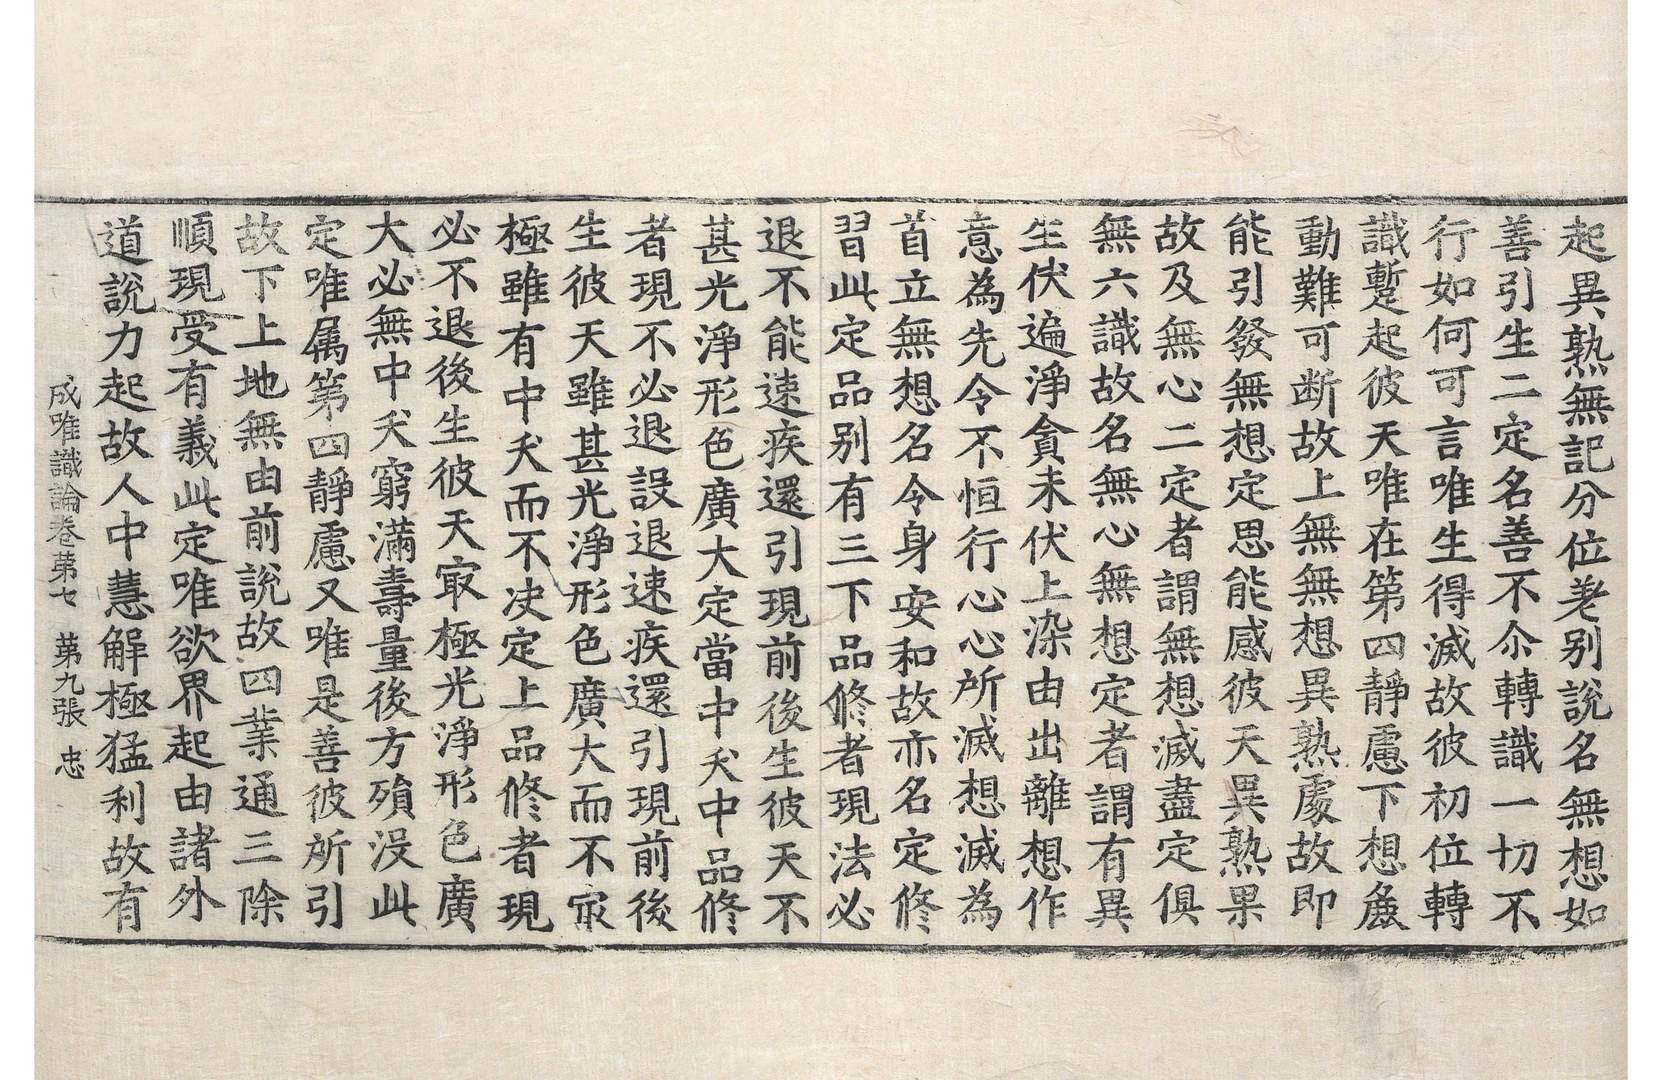 起異熟無記分位差別說名無想如
善引生二定名善不尒轉識一切不
行如何可言唯生得滅故彼初位轉
識蹔起彼天唯在第四靜慮下想麁
動難可断故上無無想異熟處故即
能引發無想定思能感彼天異熟果
故及無心二定者謂無想滅盡定俱
無六識故名無心無想定者謂有異
生伏遍淨貪未伏上染由出離想作
意為先令不恒行心心所滅想滅為
首立無想名令身安和故亦名定修
習此定品別有三下品修者現法必
退不能速疾還引現前後生彼天不
甚光淨形色廣大定當中夭中品修
者現不必退設退速疾還引現前後
生彼天雖甚光淨形色廣大而不㝡
極雖有中夭而不决定上品修者現
必不退後生彼天㝡極光淨形色廣
大必無中夭窮滿壽量後方殞没此
定唯属第四靜慮又唯是善彼所引
故下上地無由前說故四業通三除
順現受有義此定唯欲界起由諸外
道說力起故人中慧解極猛利故有
成唯識論卷苐七 苐九張 忠